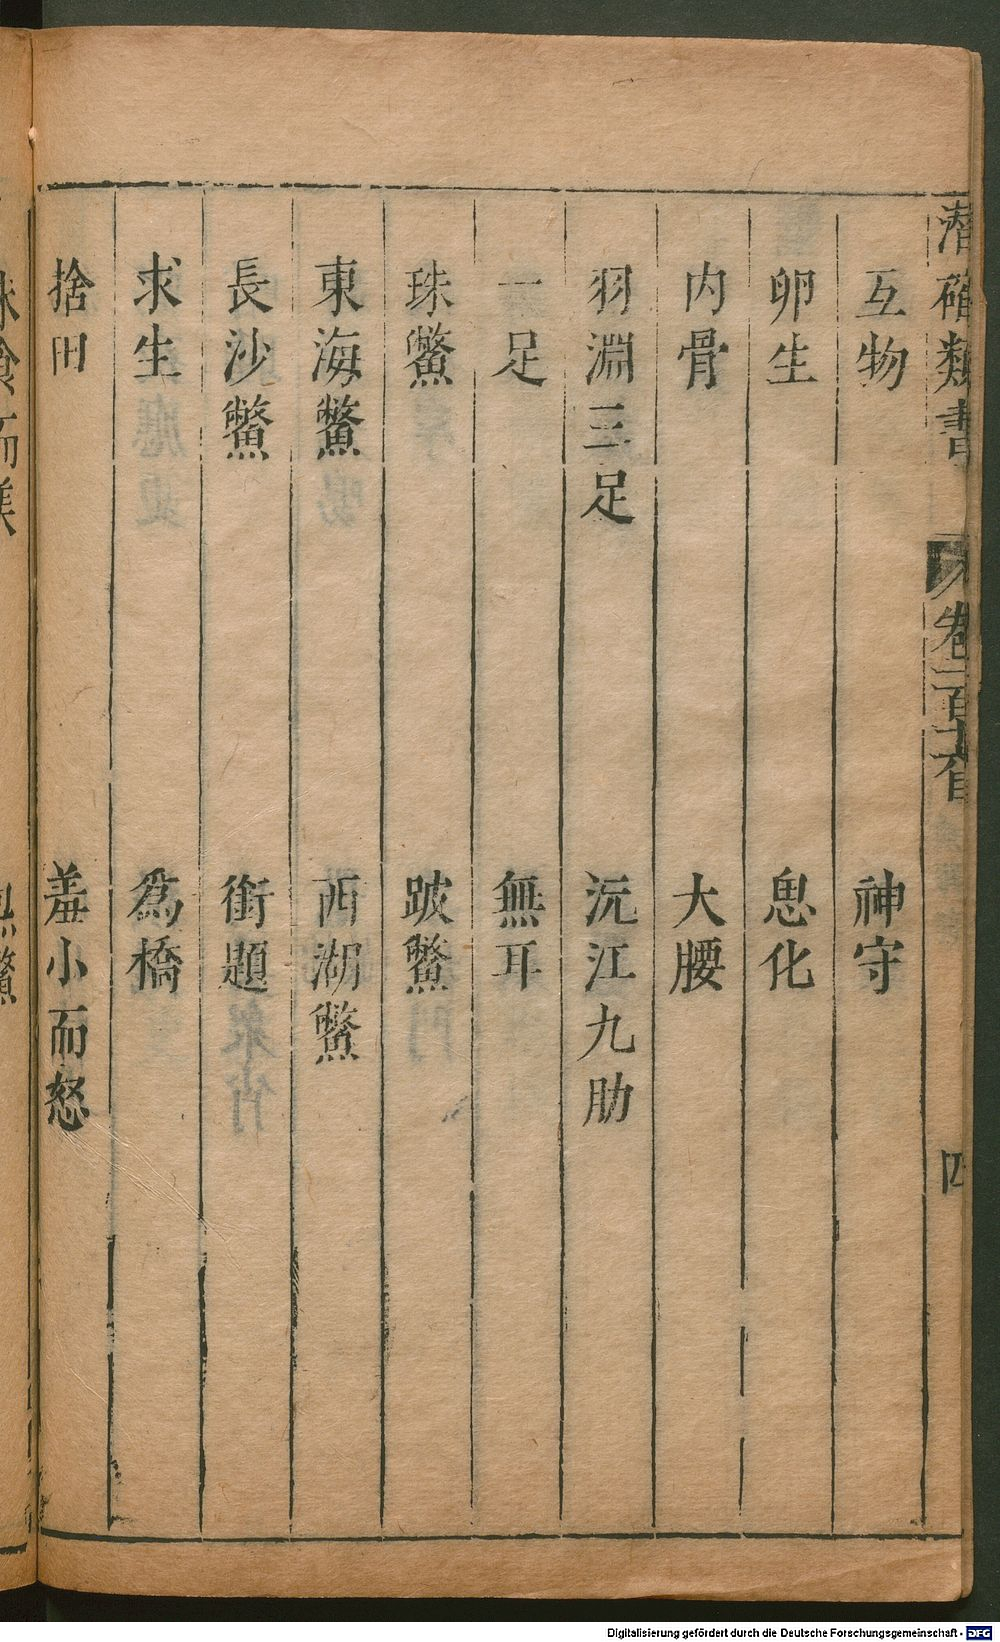 潛確類書 卷一百十八目 四
互物 神守
卵生 思化
内骨 大腰
羽淵三足 沅江九肋
一足 無耳
珠鱉 跛鱉
東海鱉 西湖鱉
長沙鱉 銜題
求生 為橋
捨田 羞小而怒
Digitalisierung gefördert durch die Deutsche Forschungsgemeinschaft - DFG